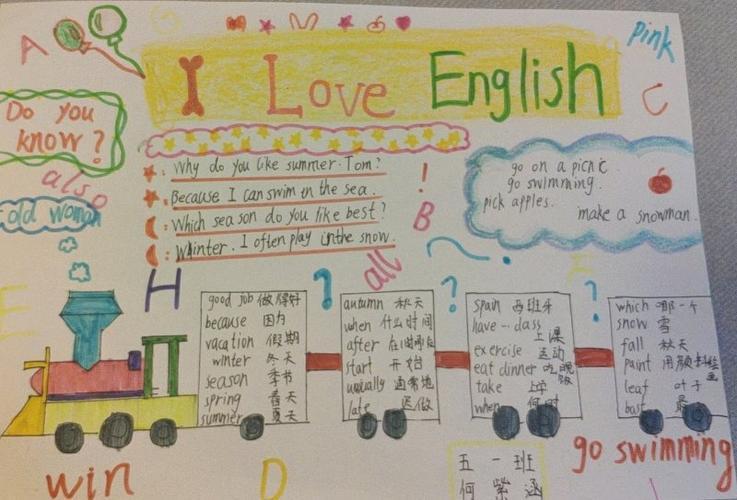 A
I Love English
Pink
C
Do you
know?
also
old woman
Why do you like summer. Tom?
Because I can swim in the sea.
Which season do you like best?
Winter. I often play in the snow.
!
B
go on a picnic.
go swimming.
pick apples.
make a snowman.
E
H
?
all
?
E
?
good job 做得好
because 因为
vacation 假期
winter 冬天
season 季节
spring 春天
summer 夏天
autumn 秋天
when 什么时间
after
start 开始
usually 通常地
late
spain 西班牙
have--class 上课
exercise 运动
eat dinner 吃晚饭
take
when 何时
which 哪一个
snow 雪
fall 秋天
paint 用颜料绘画
leaf 叶子
win
D
五一班
何紫涵
go swimming